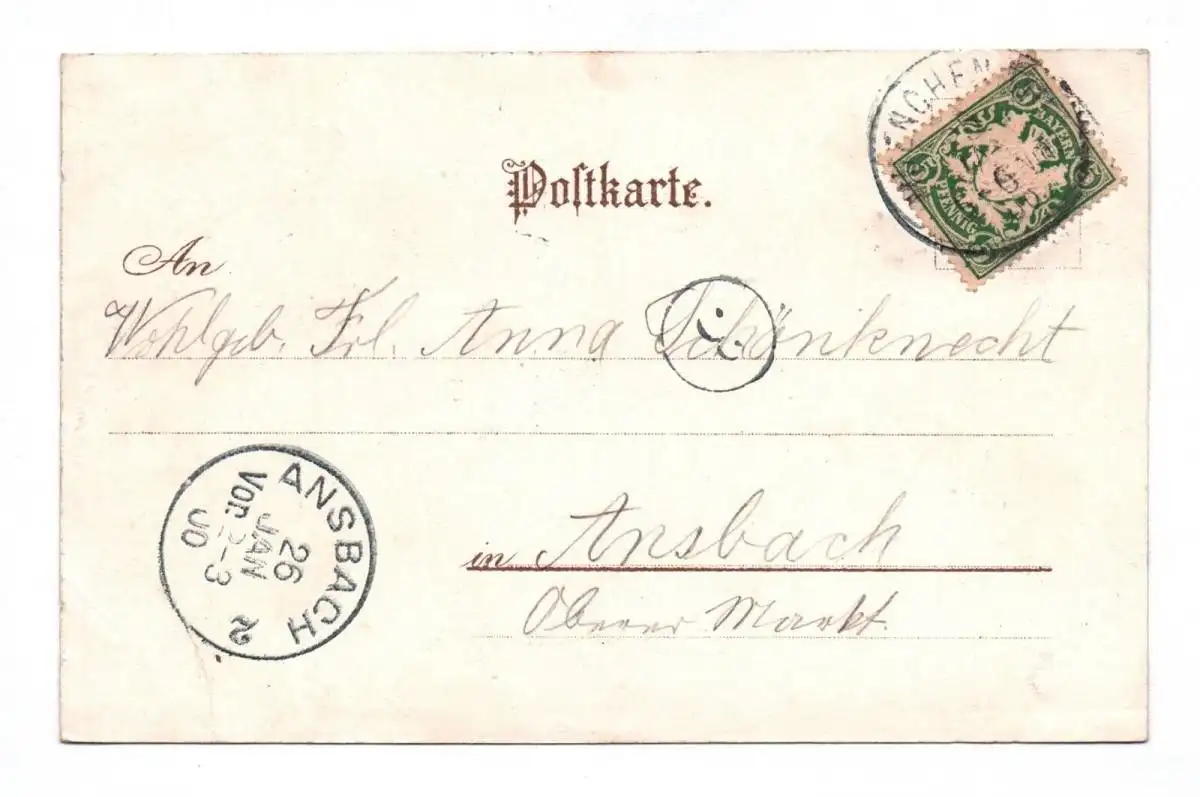 Postkarte.
An
Wohlgeb. Frl. Anna Schönknecht
in Ansbach
Oberer Markt.
ANSBACH 2
26
JAN
Vor. 2-3
BAYERN
5 5 5
PFENNIG
NCHEN